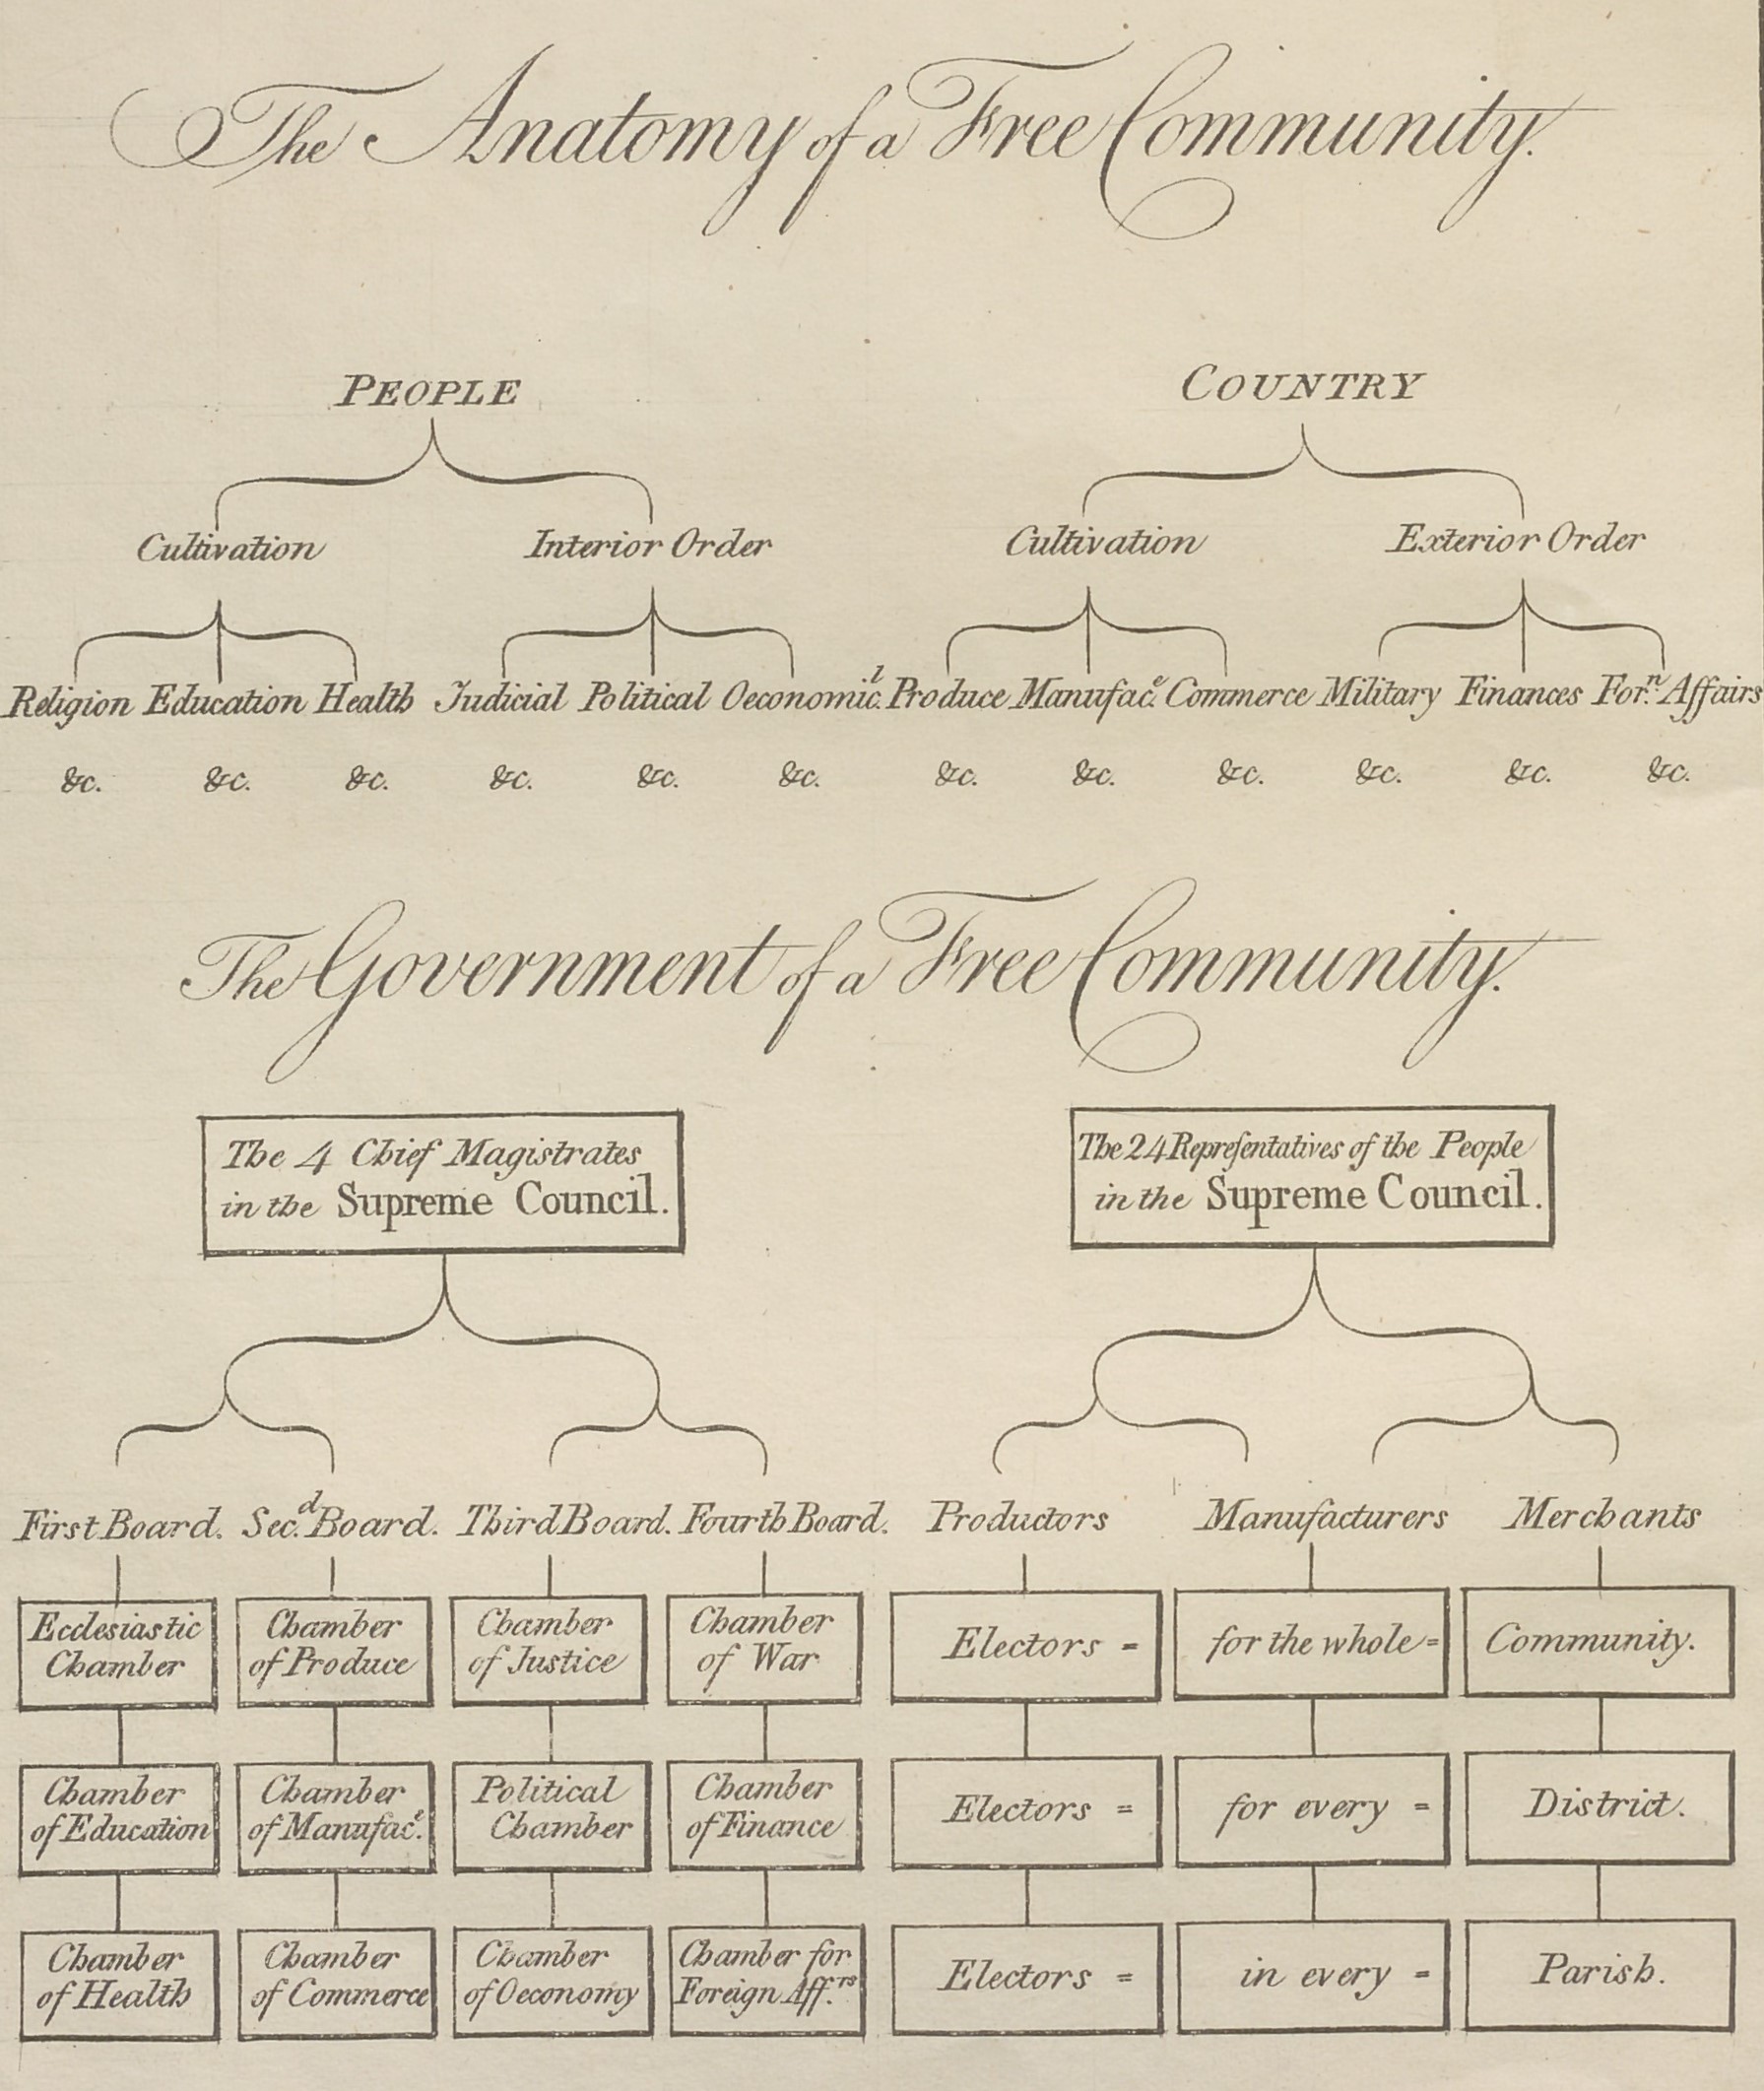 The Anatomy of a Free Community.
PEOPLE
COUNTRY
Cultivation
Interior Order
Cultivation
Exterior Order
Religion Education Health Judicial Political Oeconomic.l Produce Manufac.e Commerce Military Finances For.n Affairs
&c. &c. &c. &c. &c. &c. &c. &c. &c. &c. &c. &c.
The Government of a Free Community.
The 4 Chief Magistrates
in the Supreme Council.
The 24 Repreſentatives of the People
in the Supreme Council.
First Board. Sec.d Board. Third Board. Fourth Board. Productors Manufacturers Merchants
Ecclesiastic
Chamber
Chamber
of Produce
Chamber
of Justice
Chamber
of War
Electors =
for the whole =
Community.
Chamber
of Education
Chamber
of Manufac.e
Political
Chamber
Chamber
of Finance
Electors =
for every =
District.
Chamber
of Health
Chamber
of Commerce
Chamber
of Oeconomy
Chamber for
Foreign Aff.rs
Electors =
in every =
Parish.